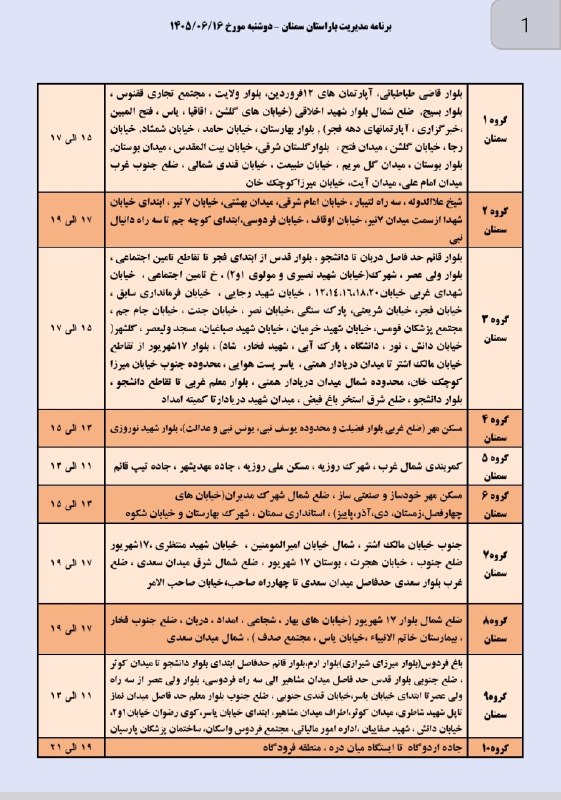 1
برنامه مدیریت بار استان سمنان - دوشنبه مورخ ۱۴۰۵/۰۶/۱۶
گروه ۱
سمنان
بلوار قاضی طباطبائی، آپارتمان های ۱۲فروردین، بلوار ولایت ، مجتمع تجاری ققنوس ،
بلوار بسیج, ضلع شمال بلوار شهید اخلاقی (خیابان های گلشن ، اقاقیا ، یاس ، فتح المبین
،خبرگزاری ، آپارتمانهای دهه فجر) , بلوار بهارستان ، خیابان حامد ، خیابان شمشاد, خیابان
رجا ، خیابان گلشن ، میدان فتح ، بلوارگلستان شرقی، خیابان بیت المقدس ، میدان بوستان,
بلوار بوستان ، میدان گل مریم ، خیابان طبیعت ، خیابان قندی شمالی ، ضلع جنوب غرب
میدان امام علی، میدان آیت، خیابان میرزاکوچک خان
۱۵ الی ۱۷
گروه ۲
سمنان
شیخ علاالدوله ، سه راه لتیبار ، خیابان امام شرقی، میدان بهشتی، خیابان ۷ تیر ، ابتدای خیابان
شهدا ازسمت میدان ۷تیر، خیابان اوقاف ، خیابان فردوسی،ابتدای کوچه جم تا سه راه دانیال
نبی
۱۷ الی ۱۹
گروه ۳
سمنان
بلوار قائم حد فاصل دربان تا دانشجو ، بلوار قدس از ابتدای فجر تا تقاطع تامین اجتماعی ،
بلوار ولی عصر ، شهرک(خیابان شهید نصیری و مولوی ۱و۲) ، خ تامین اجتماعی ، خیابان
شهدای غربی خیابان ۱۲،۱۴،۱۶،۱۸،۲۰ ، خیابان شهید رجایی ، خیابان فرمانداری سابق ،
خیابان فجر، خیابان شریعتی، پارک سنگی ،خیابان نصر ، خیابان جنت ، خیابان جام جم ،
مجتمع پزشکان قومس، خیابان شهید خرمیان ، خیابان شهید صباغیان، مسجد ولیعصر ، گلشهر(
خیابان دانش ، نور ، دانشگاه ، پارک آبی ، شهید فخار، شاد) ، بلوار ۱۷شهریور از تقاطع
خیابان مالک اشتر تا میدان دریادار همتی ، یاسر پست هوایی ، محدوده جنوب خیابان میرزا
کوچک خان، محدوده شمال میدان دریادار همتی ، بلوار معلم غربی تا تقاطع دانشجو ،
بلوار دانشجو ، ضلع شرق استخر باغ فیض ، میدان شهید دریادارتا کمیته امداد
۱۵ الی ۱۷
گروه ۴
سمنان
مسکن مهر (ضلع غربی بلوار فضیلت و محدوده یوسف نبی، یونس نبی و عدالت)، بلوار شهید نوروزی
۱۳ الی ۱۵
گروه ۵
سمنان
کمربندی شمال غرب ، شهرک روزیه ، مسکن ملی روزیه ، جاده مهدیشهر ، جاده تیپ قائم
۱۱ الی ۱۳
گروه ۶
سمنان
مسکن مهر خودساز و صنعتی ساز ، ضلع شمال شهرک مدیران(خیابان های
چهارفصل،زمستان، دی،آذر،پاییز) ، استانداری سمنان ، شهرک بهارستان و خیابان شکوه
۱۳ الی ۱۵
گروه۷
سمنان
جنوب خیابان مالک اشتر ، شمال خیابان امیرالمومنین ، خیابان شهید منتظری ،۱۷شهریور
ضلع جنوب ، خیابان هجرت ، بوستان ۱۷ شهریور ، ضلع شمال شرق میدان سعدی ، ضلع
غرب بلوار سعدی حدفاصل میدان سعدی تا چهارراه صاحب،خیابان صاحب الامر
۱۷ الی ۱۹
گروه۸
سمنان
ضلع شمال بلوار ۱۷ شهریور (خیابان های بهار ، شجاعی ، امداد ، دربان ، ضلع جنوب فخار
، بیمارستان خاتم الانبیاء ،خیابان یاس ، مجتمع صدف ) ، شمال میدان سعدی
۱۷ الی ۱۹
گروه۹
سمنان
باغ فردوس(بلوار میرزای شیرازی)بلوار ارم،بلوار قائم حدفاصل ابتدای بلوار دانشجو تا میدان کوثر
، ضلع جنوبی بلوار قدس حد فاصل میدان مشاهیر الی سه راه فردوسی، بلوار ولی عصر از سه راه
ولی عصر تا ابتدای خیابان یاسر،خیابان قندی جنوبی ، ضلع جنوب بلوار معلم حد فاصل میدان نماز
تاپل شهید شاطری، میدان کوثر،اطراف میدان مشاهیر، ابتدای خیابان یاسر،کوی رضوان خیابان ۱و۲،
خیابان دانش ، شهید صفاییان ،اداره امور مالیاتی، مجتمع فردوس واسکان، ساختمان پزشکان پارسیان
۱۱ الی ۱۳
گروه۱۰
جاده اردوگاه تا ایستگاه میان دره ، منطقه فرودگاه
۱۹ الی ۲۱